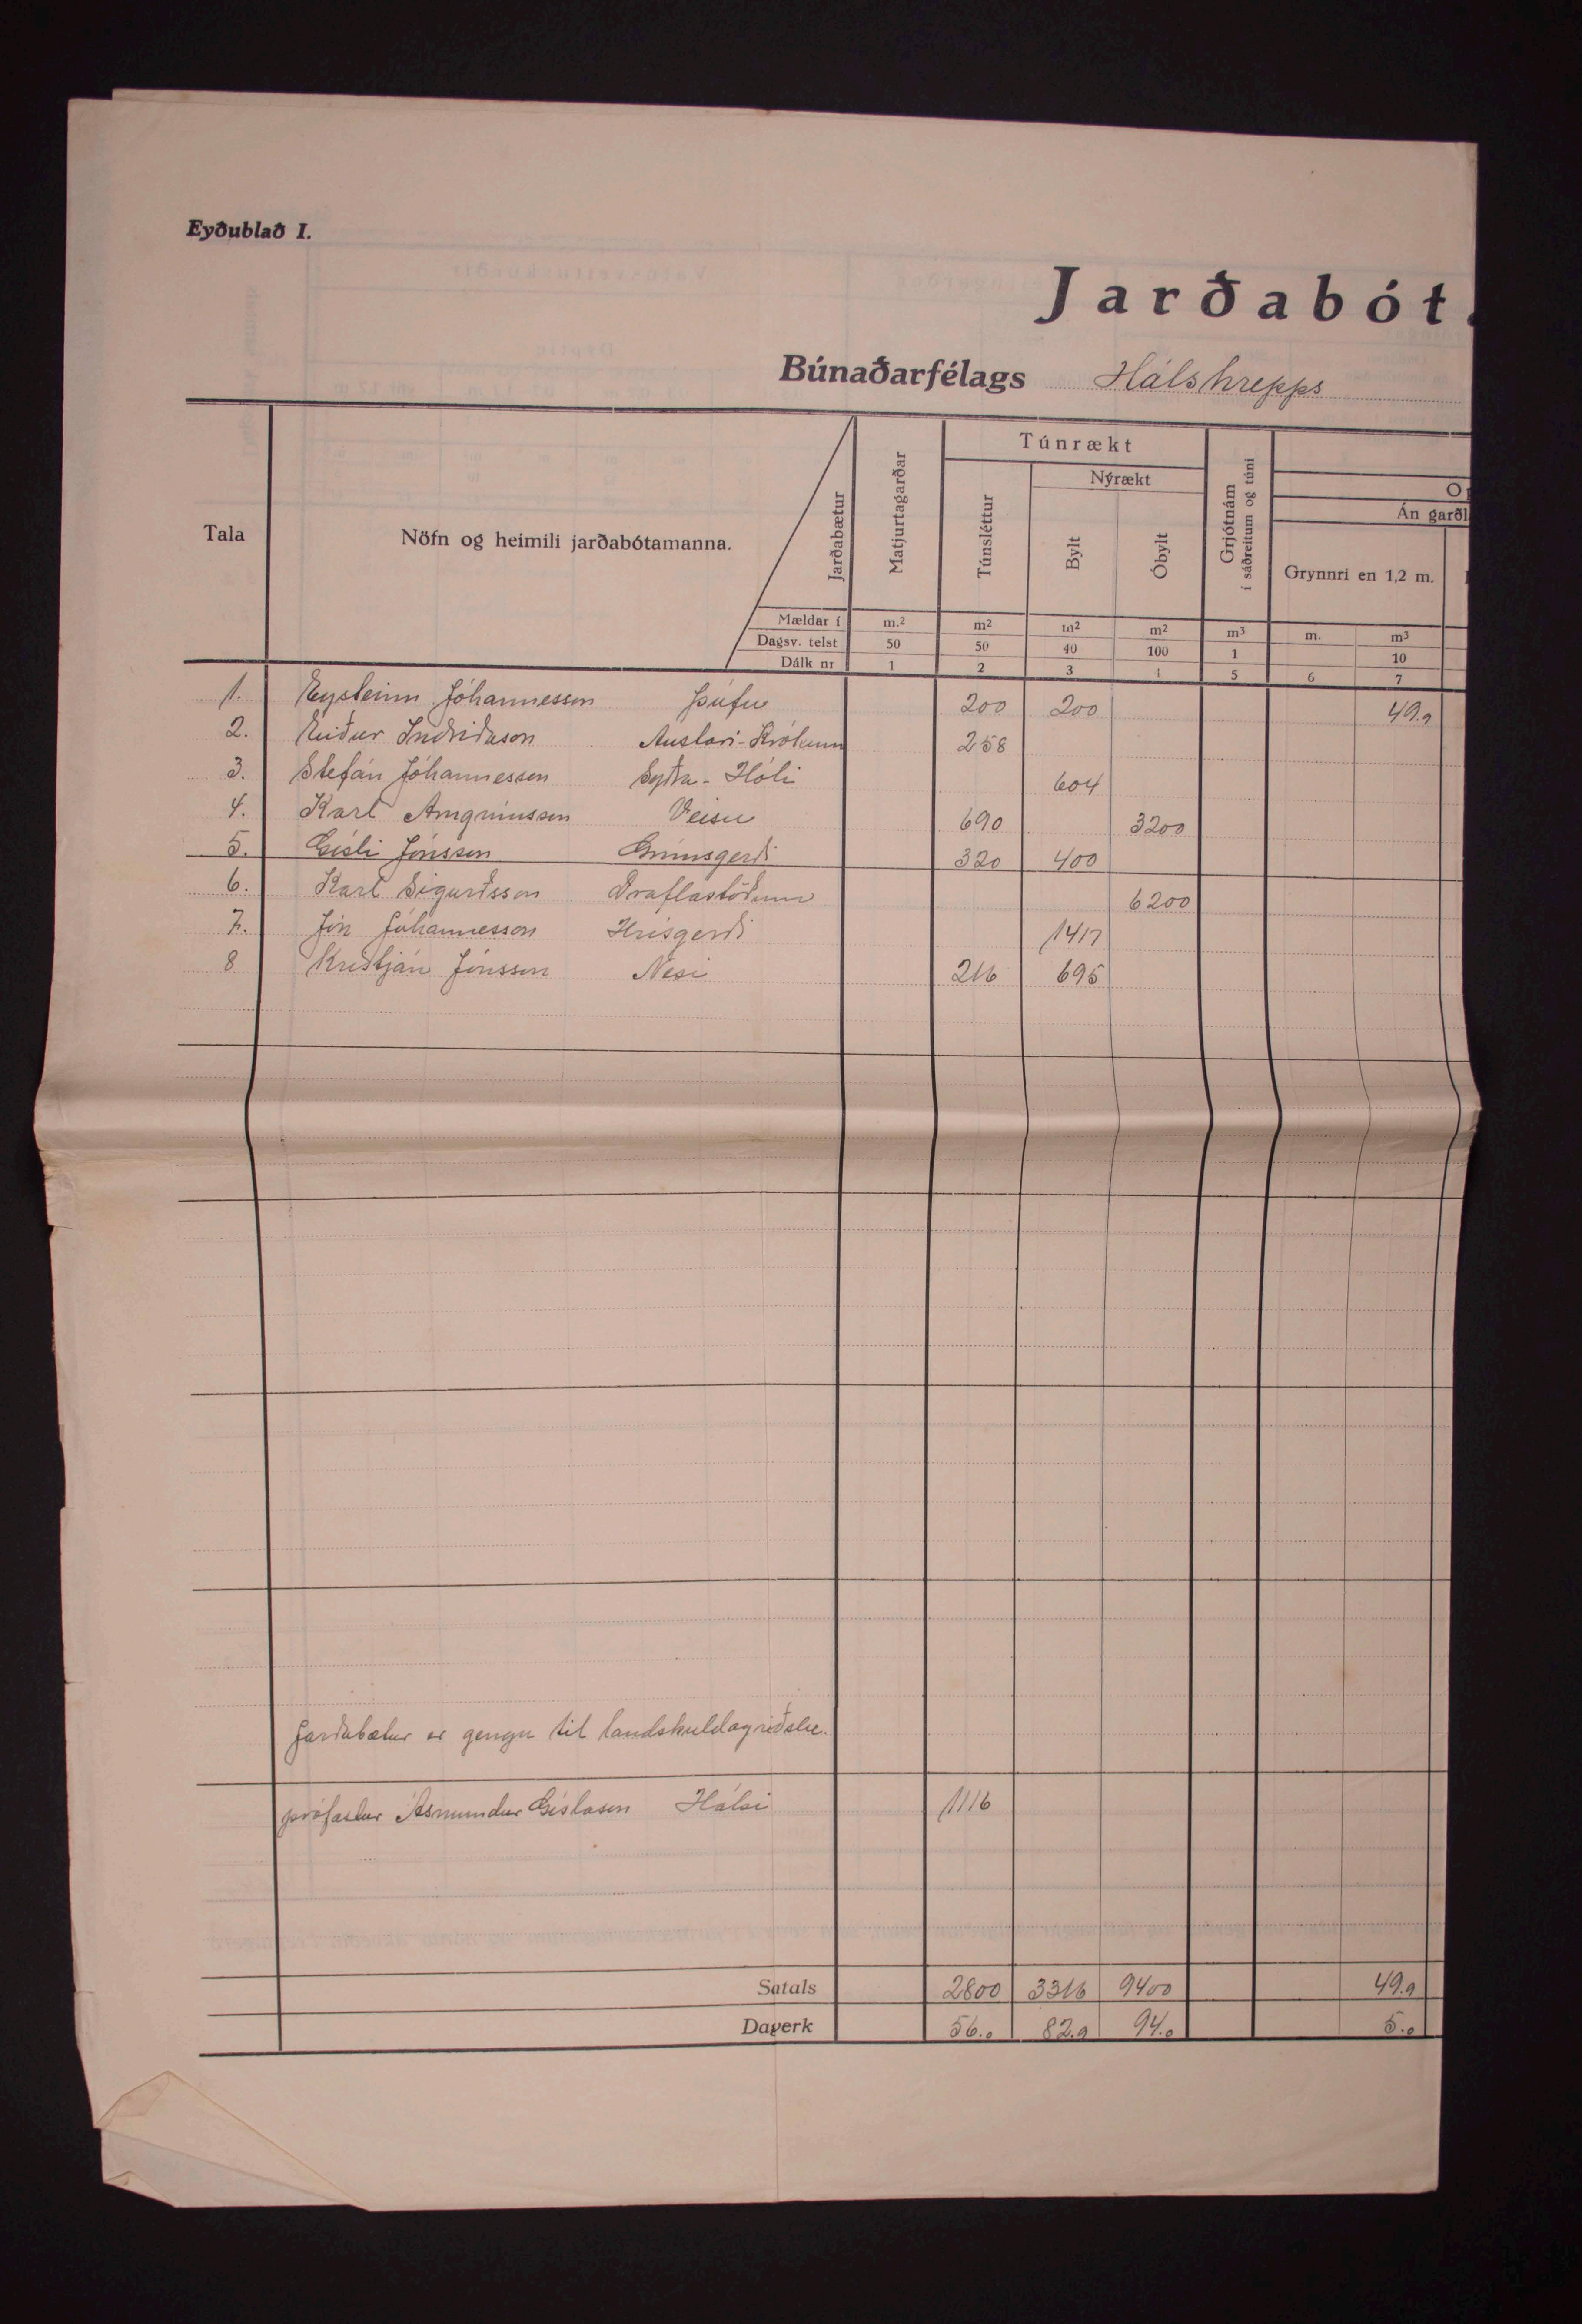 Eyðublað I.
Jarðabót
Búnaðarfélags Hálshrepps
Tala
Nöfn og heimili jarðabótamanna.
Jarðabætur
Matjurtagarðar
Túnrækt
Túnsléttur
Nýrækt
Bylt
Óbylt
Grjótnám
í sáðreitum og túni
Án garðl
Grynnri en 1,2 m.
Mældar í m.² m² m² m² m³ m. m³
Dagsv. telst 50 50 40 100 1 10
Dálk nr 1 2 3 4 5 6 7
1. Eysteinn Jóhannesson Þúfu 200 200 49.9
2. Eiður Indriðason Austari-Krókum 258
3. Stefán Jóhannesson Syðra-Hóli 604
4. Karl Arngrímsson Veisu 690 3200
5. Gísli Jónsson Grímsgerði 320 400
6. Karl Sigurðsson Draflastöðum 6200
7. Jón Jóhannesson Hrísgerði 1417
8 Kristján Jónsson Nesi 216 695
Jarðabætur er gengu til landskuldagreiðslu.
prófastur Ásmundur Gíslason Hálsi 1116
Satals 2800 3316 9400 49.9
Dagverk 56.0 82.9 94.0 5.0